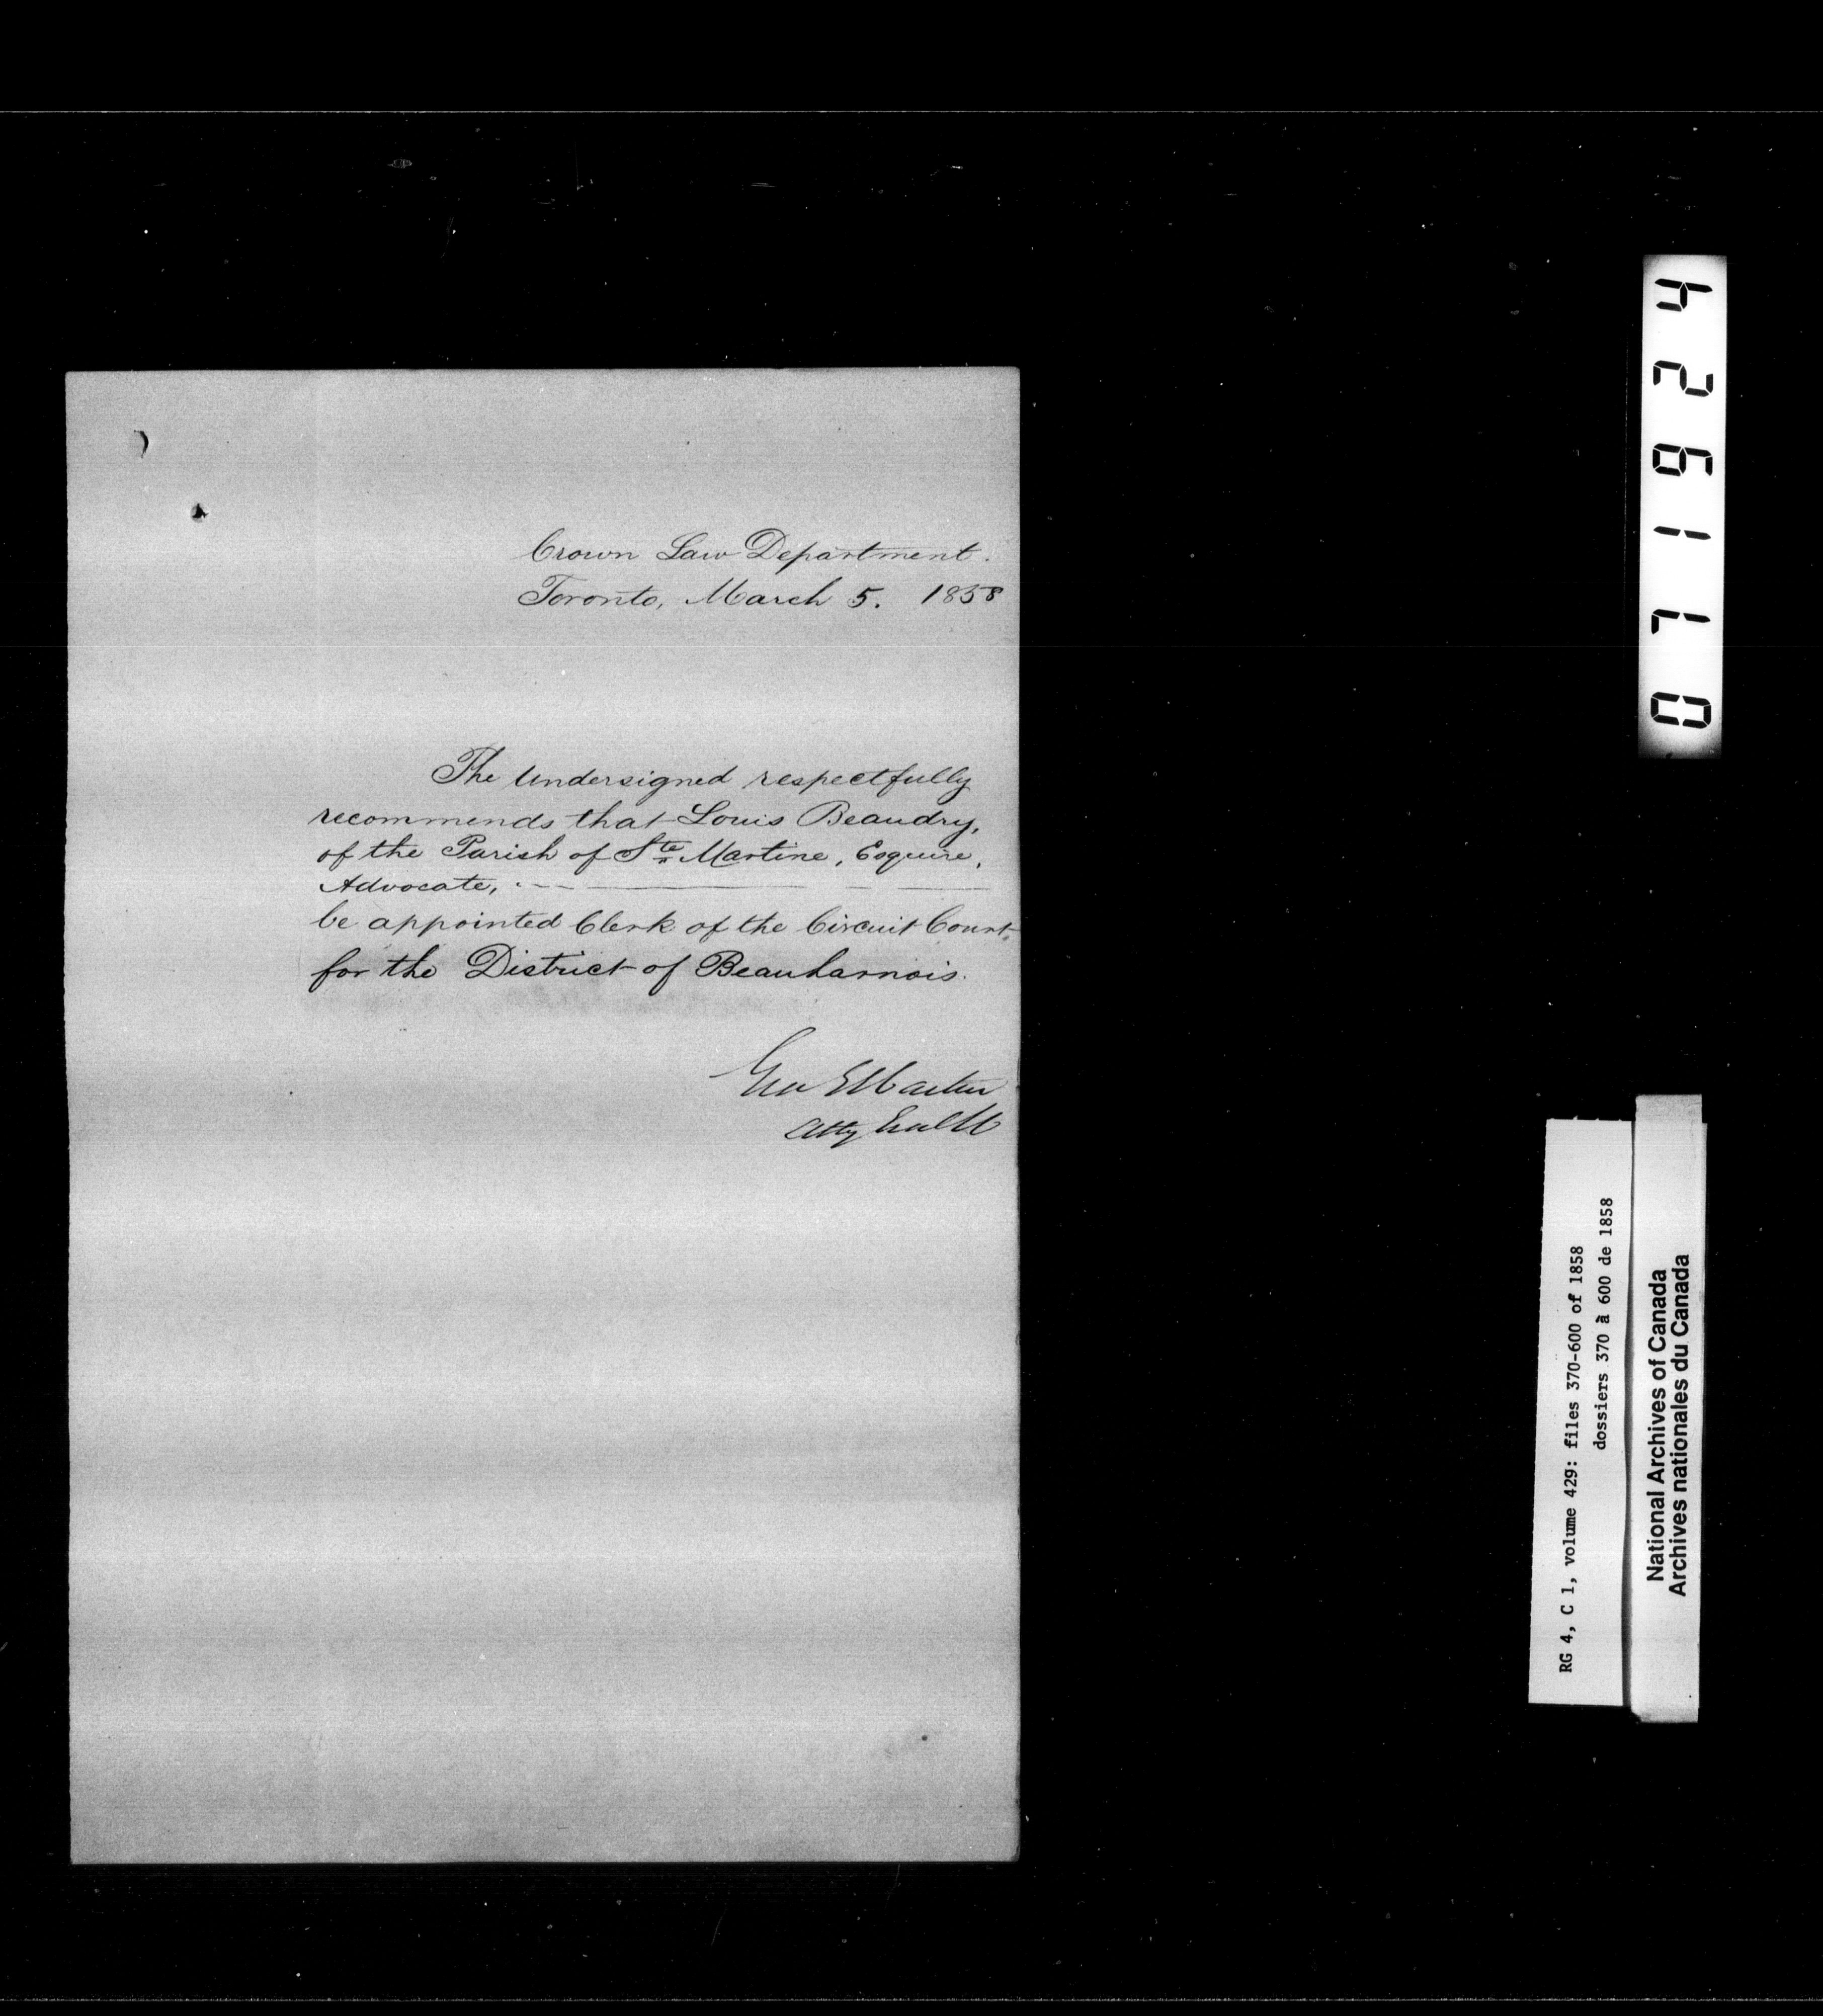 Crown Law Department.
Toronto, March 5. 1858
The Undersigned respectfully
recommends that Louis Beaudry,
of the Parish of Ste. Martine, Esquire,
Advocate,
be appointed Clerk of the Circuit Court
for the District of Beauharnois.
Geo E Cartier
Atty Genl
071924
RG 4, C 1, volume 429: files 370-600 of 1858
dossiers 370 à 600 de 1858
National Archives of Canada
Archives nationales du Canada